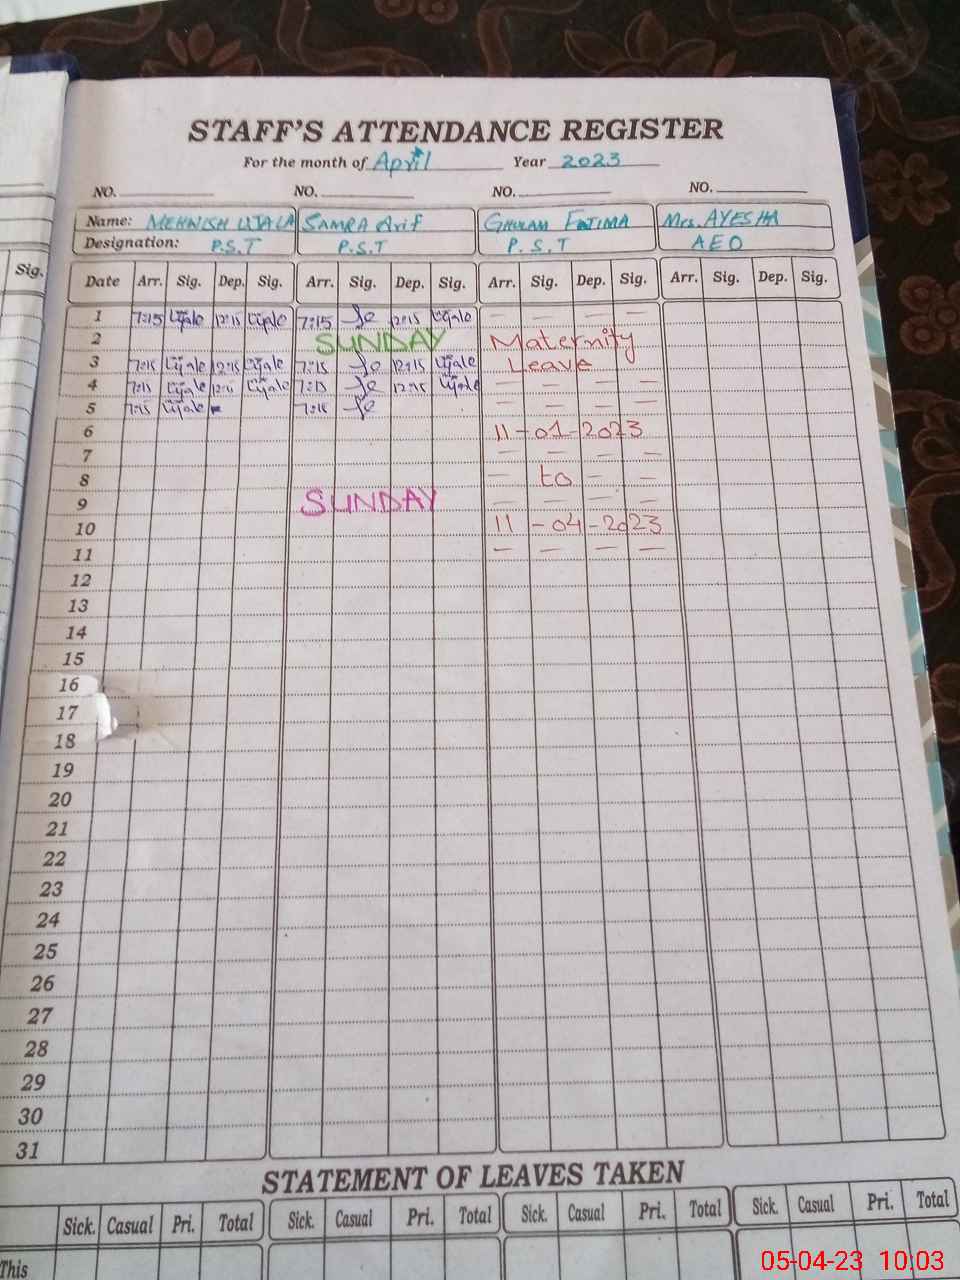 STAFF'S ATTENDANCE REGISTER
For the month of April Year 2023
NO. NO. NO. NO.
Name: MEHWISH UJALA SAMRA Arif GHULAM FATIMA Mrs. AYESHA
Designation: P.S.T P.S.T P.S.T AEO
Sig.
Date Arr. Sig. Dep. Sig. Arr. Sig. Dep. Sig. Arr. Sig. Dep. Sig. Arr. Sig. Dep. Sig.
1 7:15 Ujale 12:15 Ujale 7:15 12:15 Ujale — — — —
2 SUNDAY Maternity
3 7:15 Ujale 12:15 Ujale 7:15 12:15 Ujale Leave
4 7:15 Ujale Ujale 7:15 12:15 Ujale — — — —
5 7:15 Ujale 7:15 — — — —
6 11-01-2023
7 — — — —
8 — to — —
9 SUNDAY — — — —
10 11-04-2023
11 — — — —
12
13
14
15
16
17
18
19
20
21
22
23
24
25
26
27
28
29
30
31
STATEMENT OF LEAVES TAKEN
Sick. Casual Pri. Total Sick. Casual Pri. Total Sick. Casual Pri. Total Sick. Casual Pri. Total
This
05-04-23 10:03